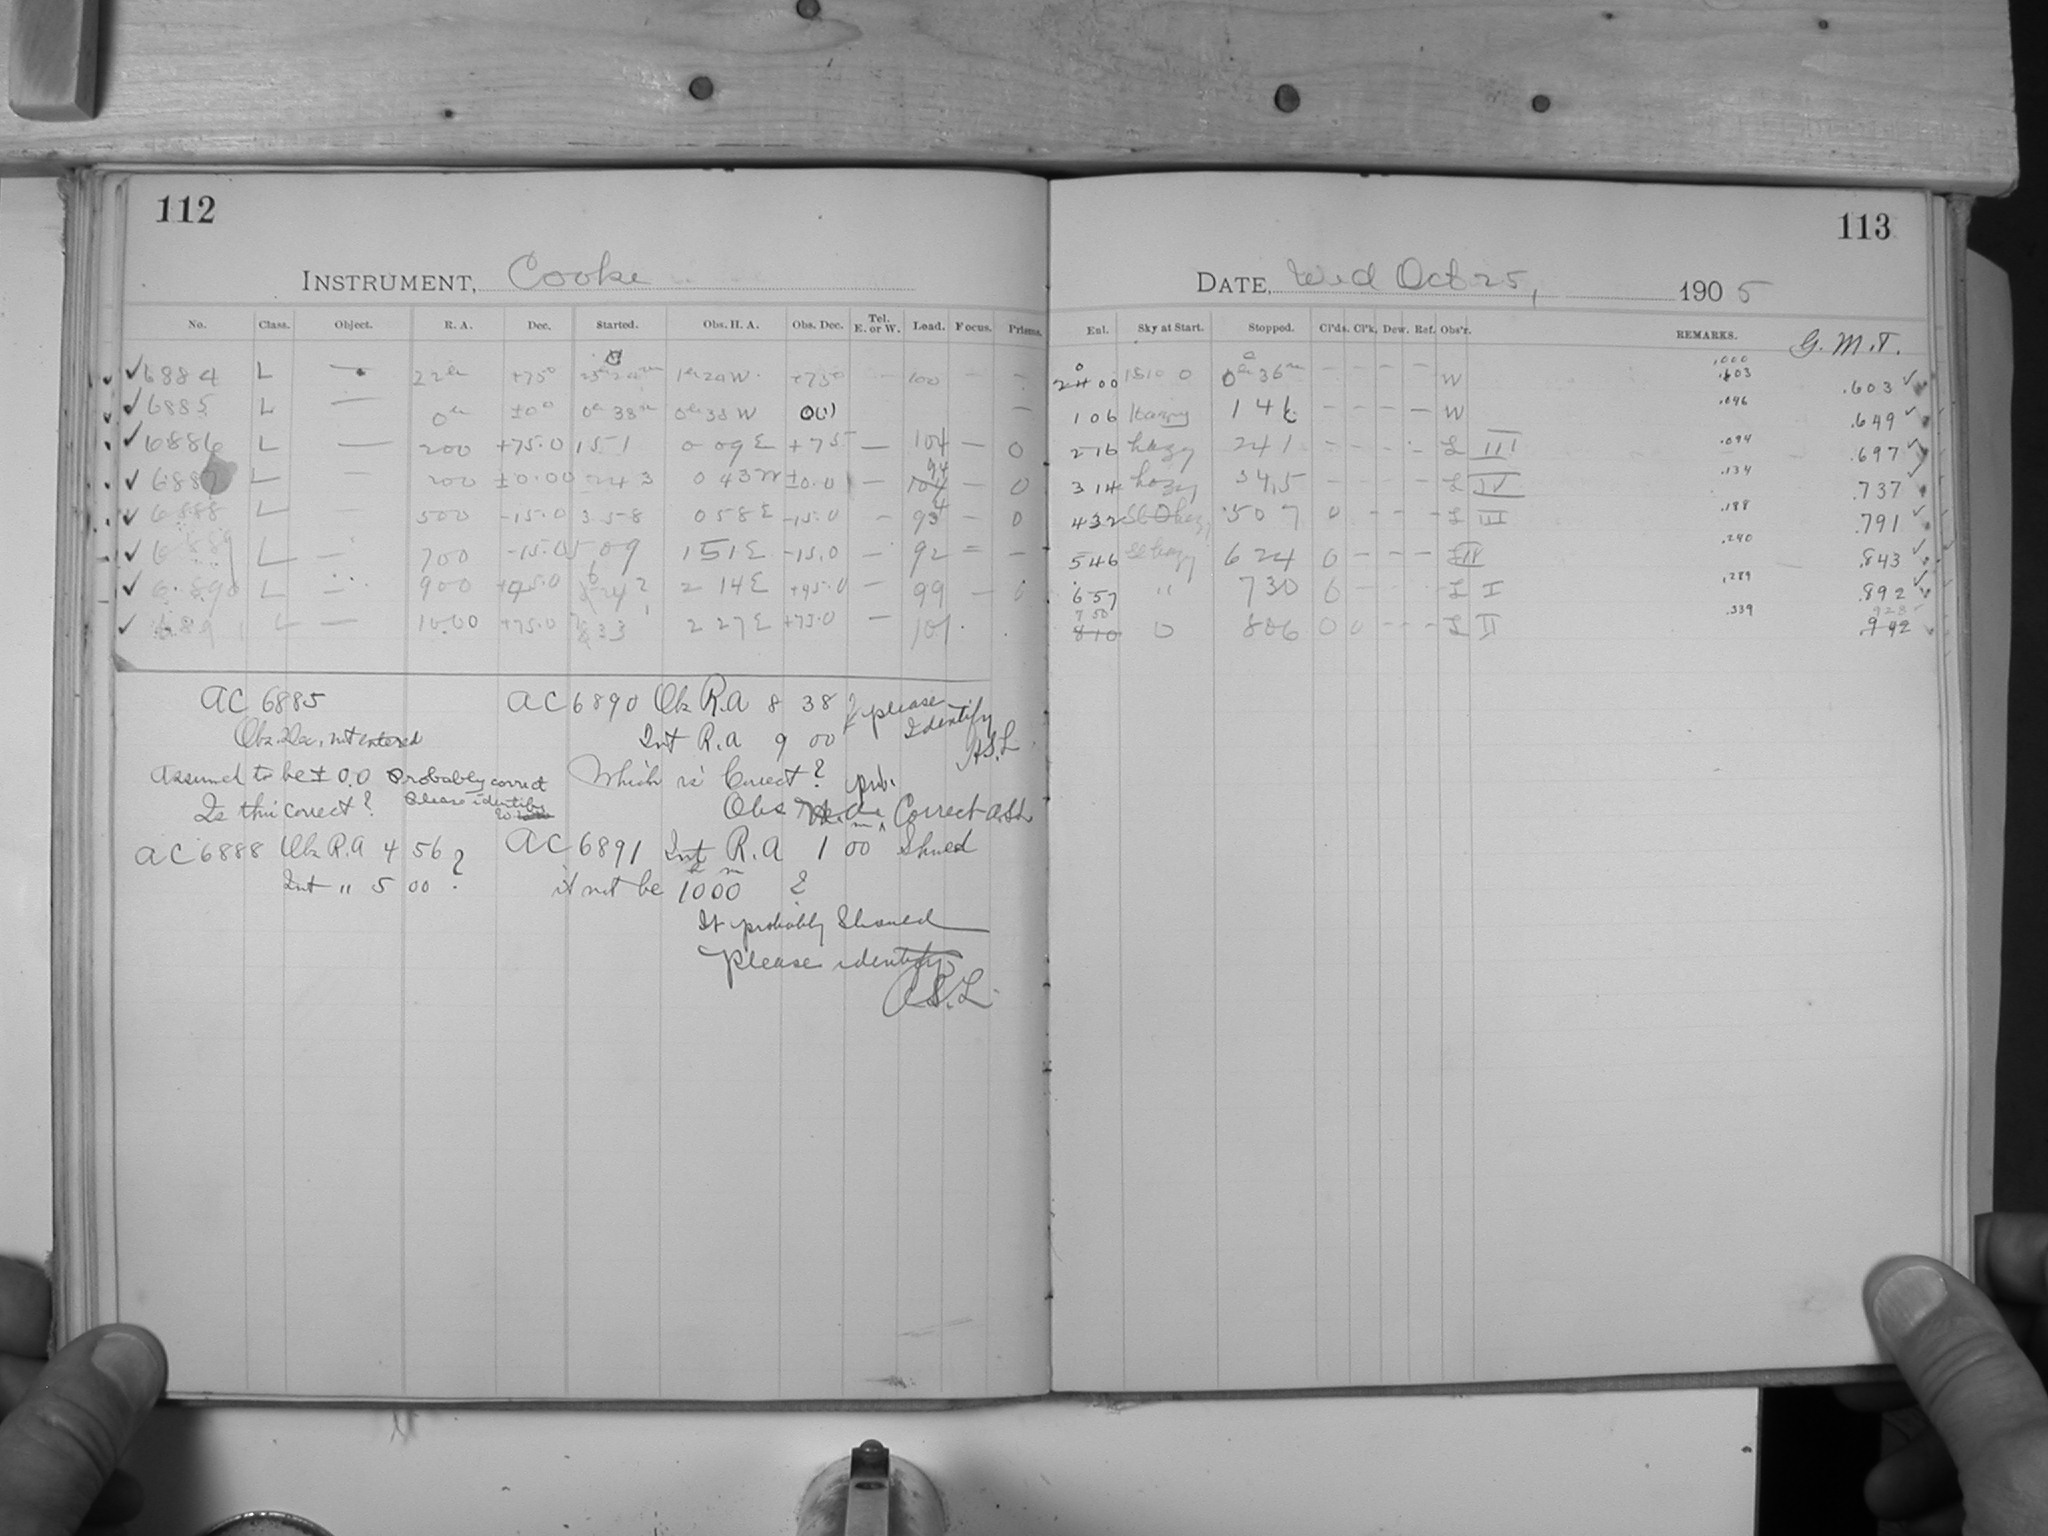 112
INSTRUMENT, Cooke
No. Class. Object. R. A. Dec. Started. Obs. H. A. Obs. Dec. Tel. E. or W. Load. Focus. Prisms.
✓ 6884 L — 22h +75° 1h 24 W. +75° — 100 — —
✓ 6885 L — 0h ±0° 0h 38m 0h 38 W 00 —
✓ 6886 L — 200 +75.0 151 0 09 E +75 — 104 — 0
✓ 688 L — 200 ±0.00 243 0 43 W ±0.0 — 94 — 0
✓ 6888 L — 500 -15.0 358 058 E -15.0 — 0
✓ 6889 L — 700 -15.0 509 151 E -15.0 — 92 = —
✓ 6890 L — 900 2 14 E +45.0 — 99 —
✓ 6891 L — 10.00 +75.0 2 27 E +75.0 — 101
AC 6885
Obs. Dec. not entered
Assumed to be ± 0.0 Probably correct
Is this correct? Please identify
AC 6888 Obs R.A 4 56 ?
Int " 5 00 ?
AC 6890 Obs R.A 8 38 ? please
Int R.a 9 00 Identify
A.S.L
Which is Correct? prob.
Obs Correct A.S.L
AC 6891 Int R.A 1 00 Should
it not be 10h 00m ?
It probably Should
Please identify
A.S.L.
113
DATE, Wed Oct 25, 1905
Exl. Sky at Start. Stopped. Cl'ds. Cl'k. Dew. Ref. Obs'r. REMARKS. G. M. T.
0h 36m — — — — W .000 .603 .603 ✓
106 Hazy — — — — W .046 .649 ✓
216 hazy 241 — — — — L III .094 .697 ✓
314 hazy 345 — — — — L IV .134 .737 ✓
432 507 0 — — — L III .188 .791 ✓
546 Sl hazy 624 0 — — — L IV .240 .843 ✓
657 " 730 0 — — — L I .289 .892 ✓
750 810 0 806 0 0 — — — L II .339 .928 .942